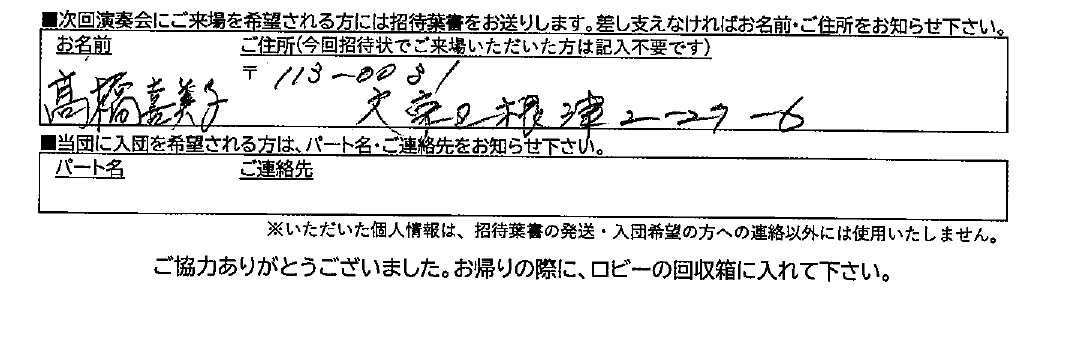 ■次回演奏会にご来場を希望される方には招待葉書をお送りします。差し支えなければお名前・ご住所をお知らせ下さい。
お名前 ご住所(今回招待状でご来場いただいた方は記入不要です)
〒 113-0031
髙橋嘉美子 文京区根津2-27-6
■当団に入団を希望される方は、パート名・ご連絡先をお知らせ下さい。
パート名 ご連絡先
※いただいた個人情報は、招待葉書の発送・入団希望の方への連絡以外には使用いたしません。
ご協力ありがとうございました。お帰りの際に、ロビーの回収箱に入れて下さい。